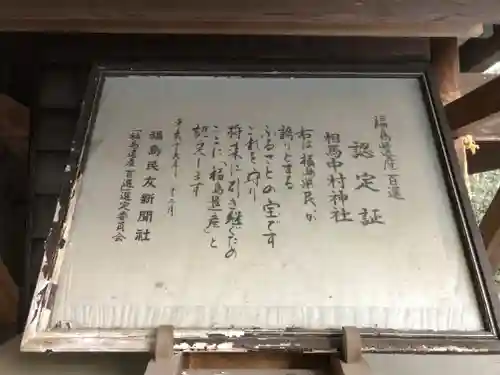 福島遺産百選
認定証
相馬中村神社
右は福島県民が
誇りとする
ふるさとの宝です
これを守り
将来に引き継ぐため
ここに「福島遺産」と
認定します
平成十九年十二月
福島民友新聞社
「福島遺産百選」選定委員会